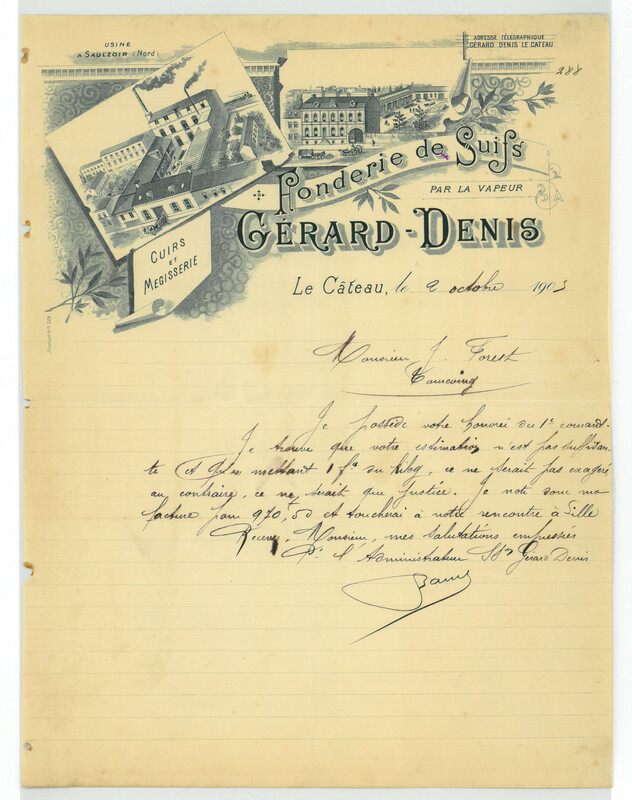 USINE
A SAULZOIR (Nord)
ADRESSE TÉLÉGRAPHIQUE
GÉRARD DENIS LE CATEAU
288
Fonderie de Suifs
PAR LA VAPEUR
GÉRARD-DENIS
CUIRS
ET
MEGISSERIE
Le Câteau, le 2 octobre 1903
Monsieur J. Forest
Tourcoing
Je possède votre honorée du 1er courant.
Je trouve que votre estimation n'est pas
te et qu'en mettant 1 fc du kilog, ce ne serait pas exagéré
au contraire, ce ne serait que justice. Je note donc ma
facture pour 970f,50 et toucherai à notre rencontre à Lille
Recevez, Monsieur, mes salutations empressés
Pr l'Administrateur Gérard Denis